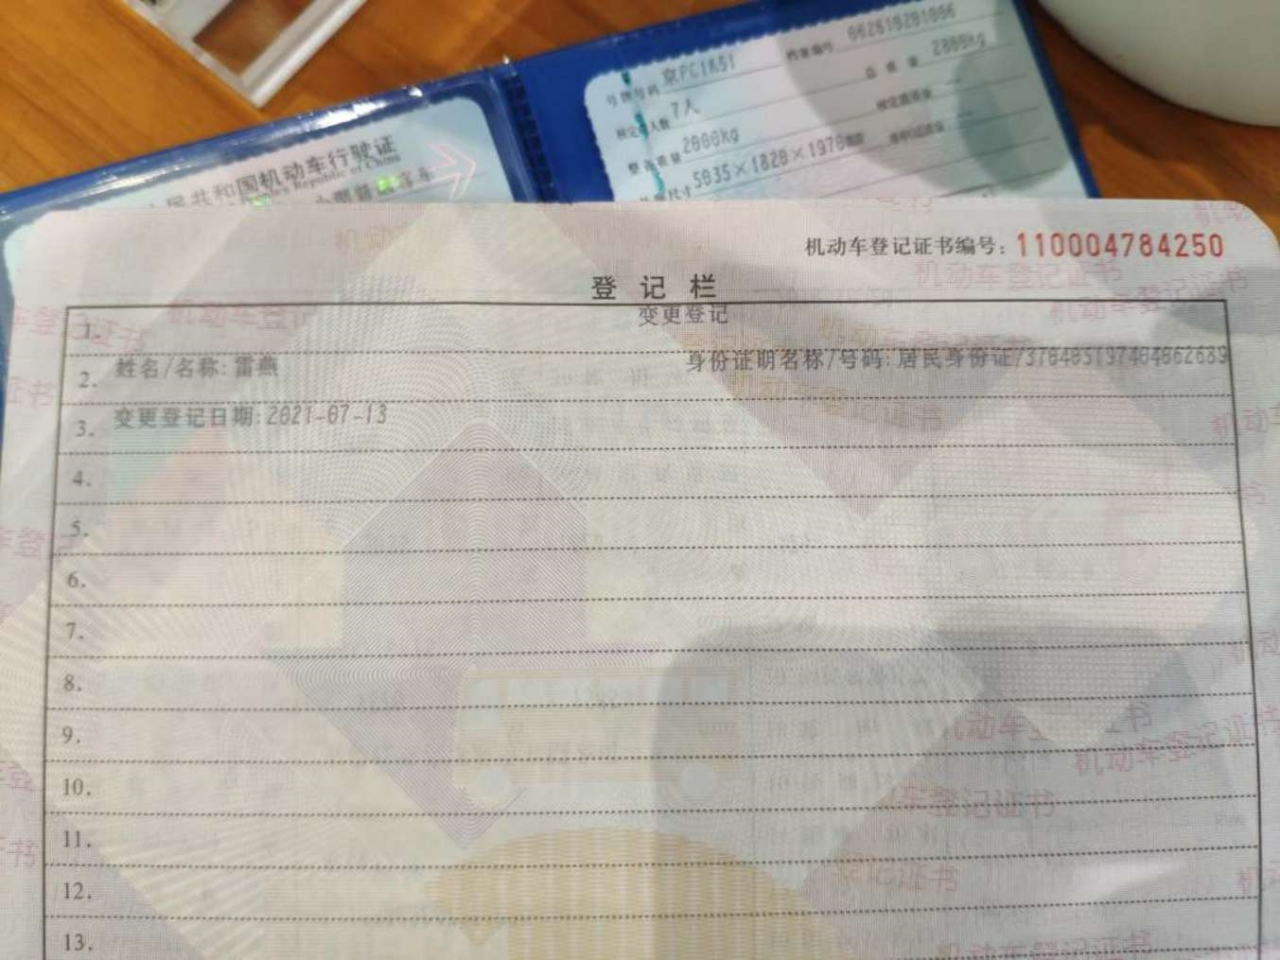 号牌号码 京PC1K51 档案编号
核定载人数 7人 总质量 2800kg
整备质量 2000kg 核定载质量
5035×1820×1970mm 准牵引总质量
共和国机动车行驶证
机动车登记证书编号：110004784250
登记栏
1. 变更登记
2. 姓名/名称:雷燕 身份证明名称/号码:居民身份证/
3. 变更登记日期:2021-07-13
4.
5.
6.
7.
8.
9.
10.
11.
12.
13.